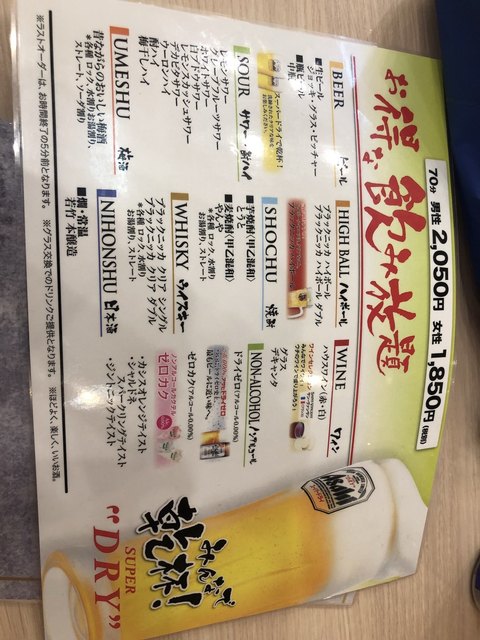 お得な飲み放題
70分 男性 2,050円 女性 1,850円(税別)
BEER ビール
■生ビール
ジョッキ・グラス・ピッチャー
■瓶ビール
中瓶
HIGH BALL ハイボール
ブラックニッカ ハイボール
ブラックニッカ ハイボール ダブル
WINE ワイン
ハウスワイン(赤・白)
グラス
デキャンタ
SOUR サワー・酎ハイ
スーパードライで乾杯!
レモンサワー
グレープフルーツサワー
ホワイトサワー
白ブドウサワー
レモンスカッシュサワー
デカビタサワー
ウーロンハイ
酎ハイ
梅干しハイ
SHOCHU 焼酎
■芋焼酎(甲乙混和)
やや
■麦焼酎(甲乙混和)
*各種 ロック、水割り
お湯割り、ストレート
NON-ALCOHOL ノンアルコール
ドライゼロ(アルコール0.00%)
最もビールに近い味へ
ゼロカク(アルコール0.00%)
ノンアルコールカクテル
ゼロカク
・カシスオレンジテイスト
・シャルドネ
スパークリングテイスト
・ジントニックテイスト
WHISKY ウイスキー
ブラックニッカ クリア シングル
ブラックニッカ クリア ダブル
*各種 ロック、水割り
お湯割り、ストレート
UMESHU 梅酒
昔ながらのおいしい梅酒
*各種 ロック、水割りお湯割り、
ストレート、ソーダ割り
NIHONSHU 日本酒
■燗・常温
若竹 本醸造
※ラストオーダーは、お時間終了の5分前となります。 ※グラス交換でのドリンクご提供となります。 ※ほどよく、楽しく、いいお酒。
Asahi
みんなで
乾杯!
SUPER
"DRY"